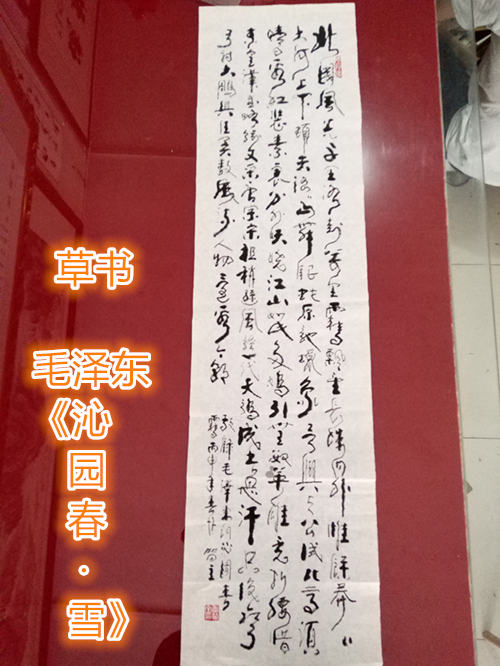 北国風光千里冰封萬里雪飄望长城内外惟馀莽々
大河上下頓失滔々山舞银蛇原驰蠟象欲與天公試比高须
晴日看红装素裹分外妖娆江山如此多娇引無数英雄竞折腰惜
秦皇漢武略输文采唐宗宋祖稍逊風骚一代天骄成吉思汗只识弯
弓射大鵰俱往矣数風流人物还看今朝
毛泽东词沁园春
雪丙申年
草书
毛泽东
《沁园春·雪》